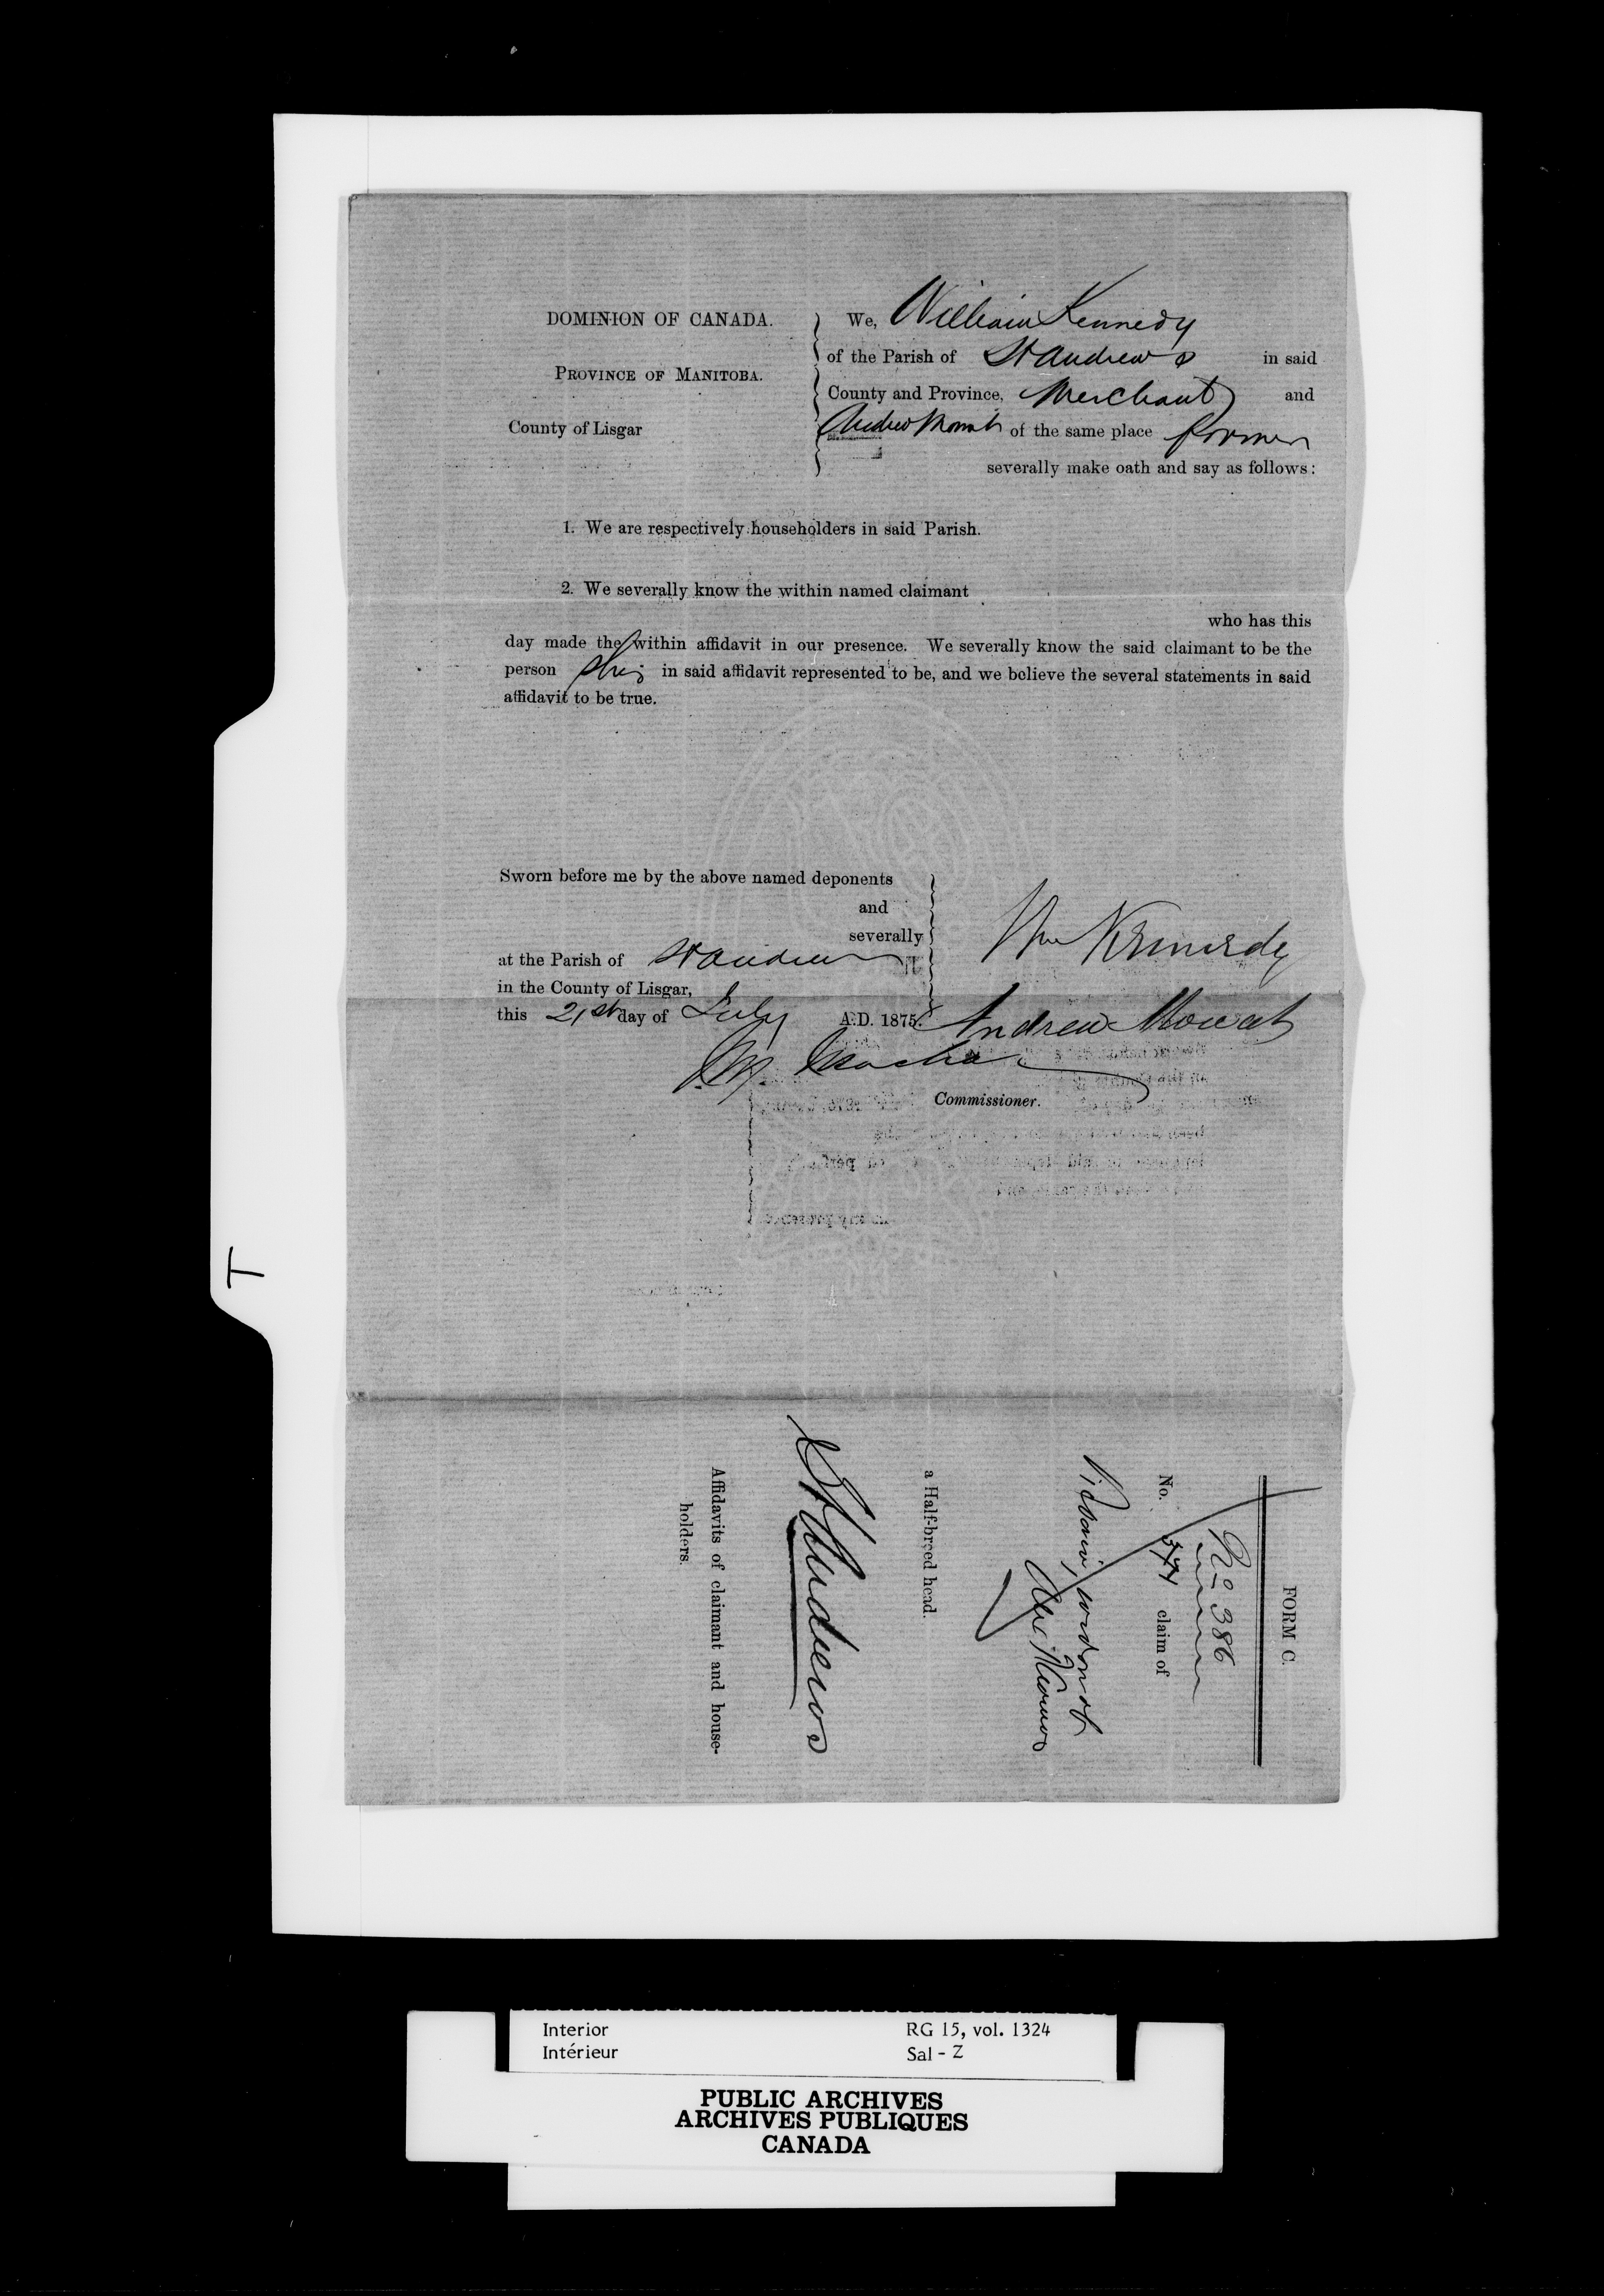 DOMINION OF CANADA.
PROVINCE OF MANITOBA.
County of Lisgar
We, William Kennedy
of the Parish of St Andrews in said
County and Province, Merchant and
Andrew Mowat of the same place Farmer
severally make oath and say as follows:
1. We are respectively householders in said Parish.
2. We severally know the within named claimant
who has this
day made the within affidavit in our presence. We severally know the said claimant to be the
person she is in said affidavit represented to be, and we believe the several statements in said
affidavit to be true.
Sworn before me by the above named deponents
and
severally
at the Parish of St Andrews
in the County of Lisgar,
this 21st day of July A.D. 1875.
Wm Kennedy
Andrew Mowat
Commissioner.
T
FORM C.
No 386
No. claim of
widow of
a Half-breed head.
St Andrews
Affidavits of claimant and house-
holders.
Interior
Intérieur
RG 15, vol. 1324
Sal - Z
PUBLIC ARCHIVES
ARCHIVES PUBLIQUES
CANADA